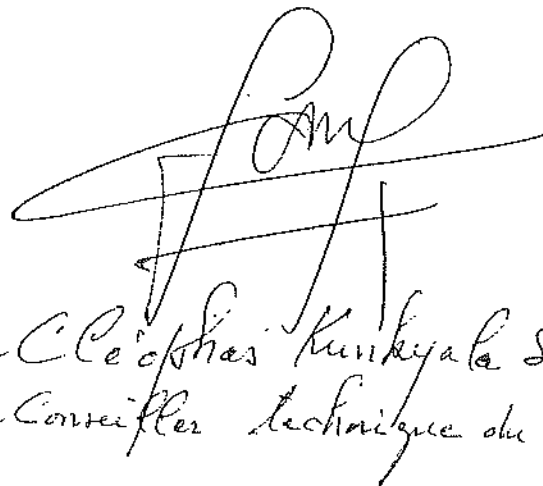 Cléophas Kunkyala S
Conseiller technique du